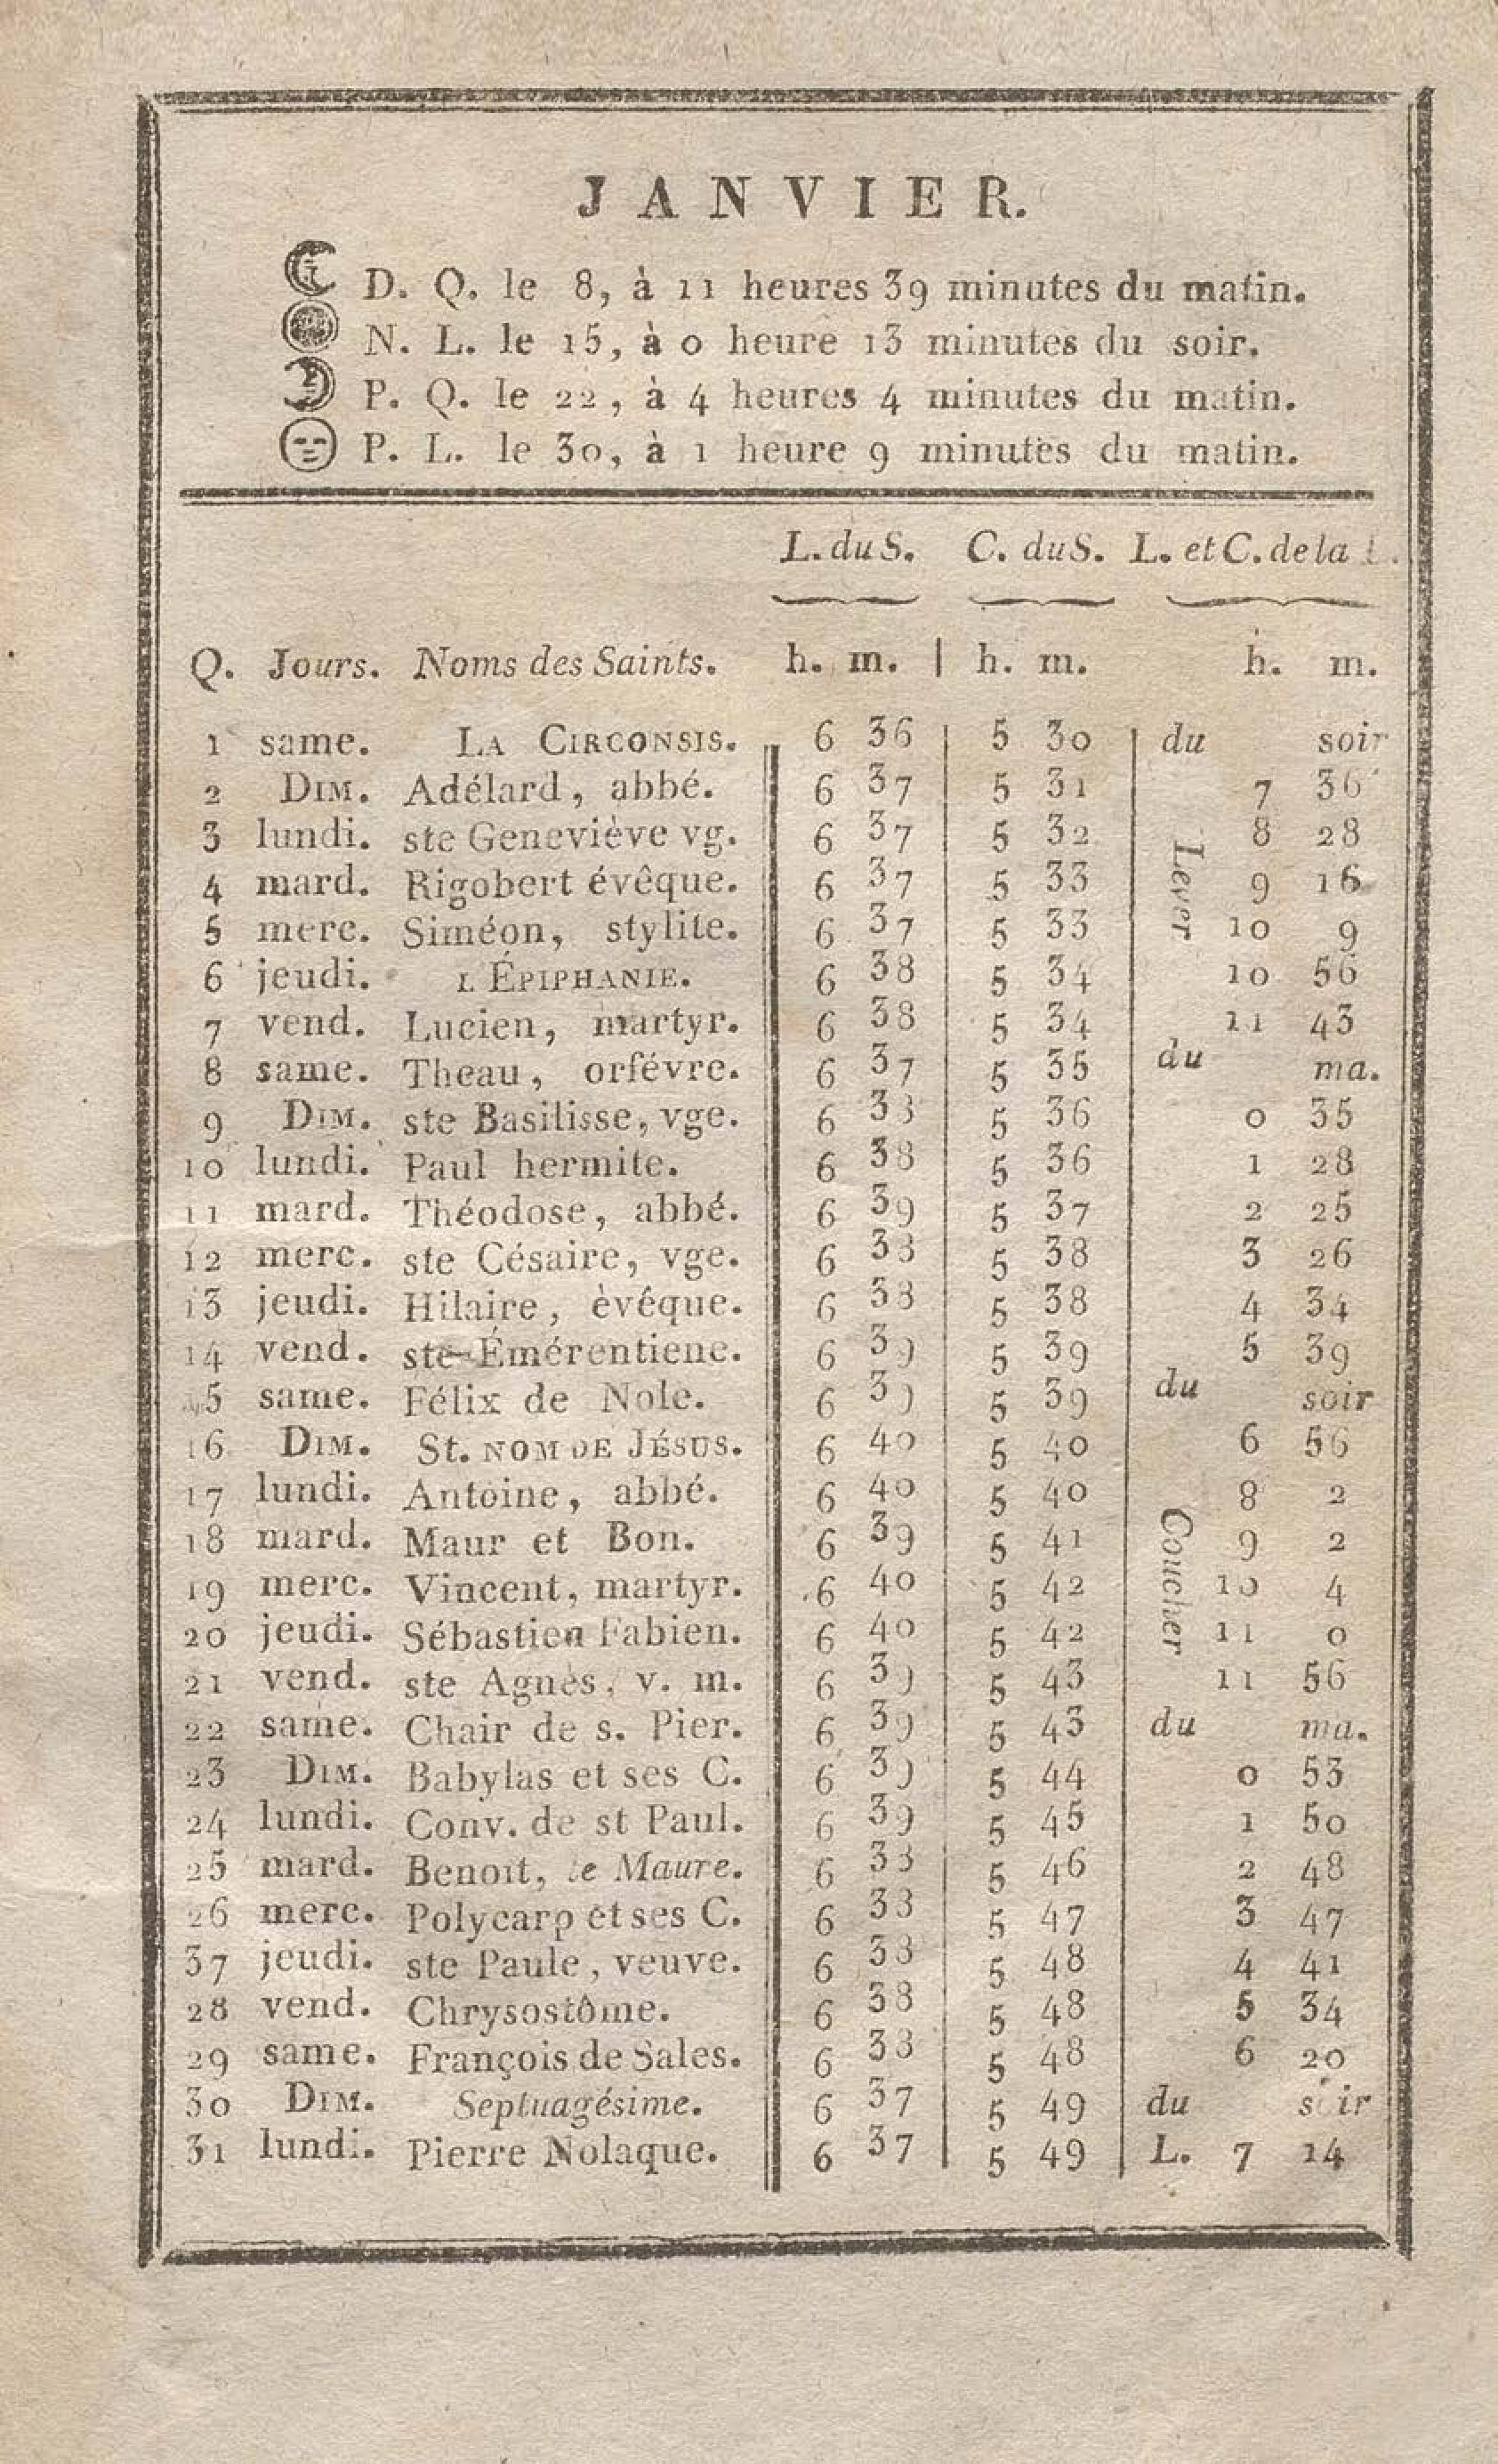 JANVIER.
D. Q. le 8, à 11 heures 39 minutes du matin.
N. L. le 15, à 0 heure 13 minutes du soir.
P. Q. le 22, à 4 heures 4 minutes du matin.
P. L. le 30, à 1 heure 9 minutes du matin.
L. du S. C. du S. L. et C. de la L.
Q. Jours. Noms des Saints. h. m. | h. m. h. m.
1 same. LA CIRCONSIS. 6 36 5 30 du soir
2 DIM. Adélard, abbé. 6 37 5 31 7 36
3 lundi. ste Geneviève vg. 6 37 5 32 8 28
4 mard. Rigobert évêque. 6 37 5 33 Lever 9 16
5 merc. Siméon, stylite. 6 37 5 33 10 9
6 jeudi. L'ÉPIPHANIE. 6 38 5 34 10 56
7 vend. Lucien, martyr. 6 38 5 34 11 43
8 same. Theau, orfévre. 6 37 5 35 du ma.
9 DIM. ste Basilisse, vge. 6 38 5 36 0 35
10 lundi. Paul hermite. 6 38 5 36 1 28
11 mard. Théodose, abbé. 6 39 5 37 2 25
12 merc. ste Césaire, vge. 6 38 5 38 3 26
13 jeudi. Hilaire, èvêque. 6 38 5 38 4 34
14 vend. ste Émérentiene. 6 39 5 39 5 39
15 same. Félix de Nole. 6 39 5 39 du soir
16 DIM. St. NOM DE JÉSUS. 6 40 5 40 6 56
17 lundi. Antoine, abbé. 6 40 5 40 8 2
18 mard. Maur et Bon. 6 39 5 41 Coucher 9 2
19 merc. Vincent, martyr. 6 40 5 42 10 4
20 jeudi. Sébastien Fabien. 6 40 5 42 11 0
21 vend. ste Agnès, v. m. 6 39 5 43 11 56
22 same. Chair de s. Pier. 6 39 5 43 du ma.
23 DIM. Babylas et ses C. 6 39 5 44 0 53
24 lundi. Conv. de st Paul. 6 39 5 45 1 50
25 mard. Benoit, le Maure. 6 38 5 46 2 48
26 merc. Polycarp et ses C. 6 38 5 47 3 47
37 jeudi. ste Paule, veuve. 6 38 5 48 4 41
28 vend. Chrysostôme. 6 38 5 48 5 34
29 same. François de Sales. 6 38 5 48 6 20
30 DIM. Septuagésime. 6 37 5 49 du soir
31 lundi. Pierre Nolaque. 6 37 5 49 L. 7 14